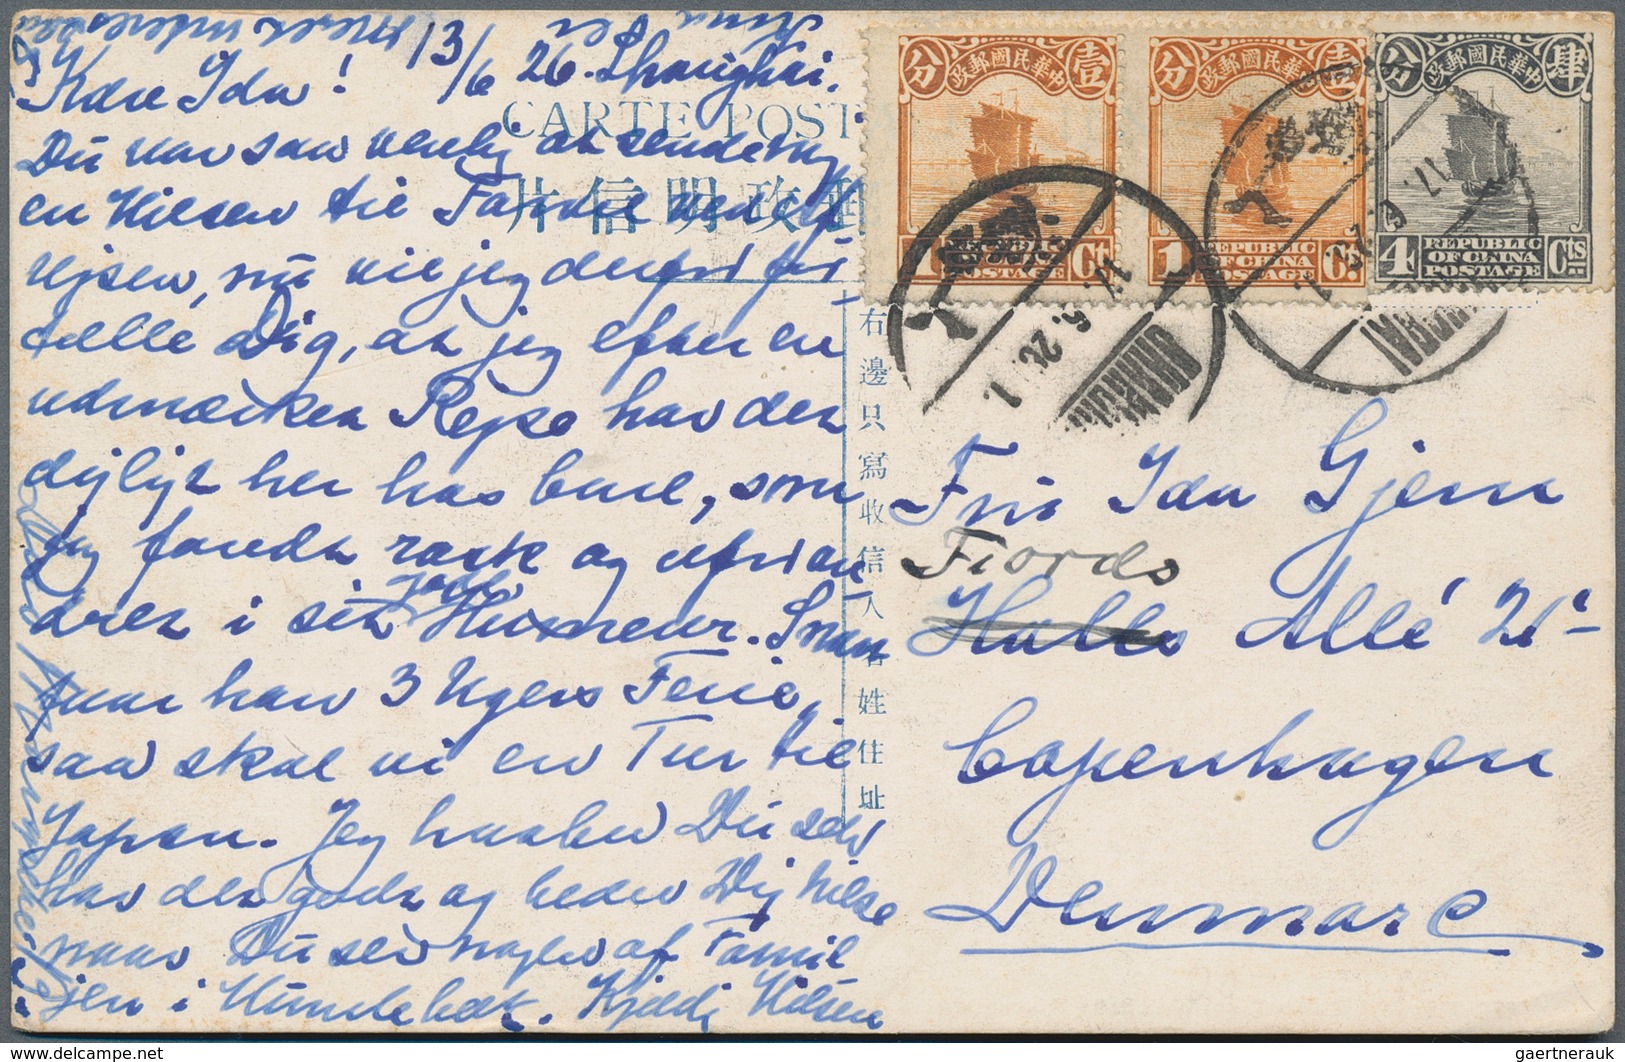 13/6 26. Shanghai.
Kære Ida!
Du var saa venlig at sende mig
en Hilsen til
rejsen, nu vil jeg derfor for-
tælle Dig, at jeg efter en
udmærket Rejse har det
dejligt her hos Carl, som
jeg fandt rask og uforan
dret i sit gode Humeur. I Jan
uar har han 3 Ugers Ferie,
saa skal vi en Tur til
Japan. Jeg haaber Du selv
har det godt og beder Dig hilse
naar Du ser nogen af Famil
jen i Humlebæk. Kjærlig Hilsen
CARTE POST
郵政明信片
右邊只寫收信人名姓住址
中華民國郵政
壹 分
1 REPUBLIC OF CHINA POSTAGE Ct
中華民國郵政
壹 分
1 REPUBLIC OF CHINA POSTAGE Ct
中華民國郵政
肆 分
4 REPUBLIC OF CHINA POSTAGE Cts
SHANGHAI
SHANGHAI
Frk Ida Gjern
Fiords
Hulls Allé 21
Copenhagen
Denmark
gaertnerauk